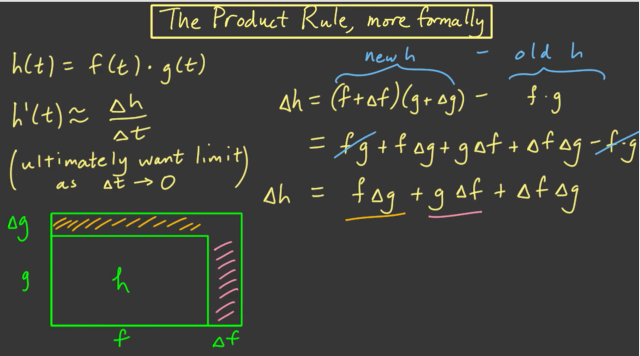 The Product Rule, more formally
h(t) = f(t) · g(t)
h'(t) ≈ Δh/Δt
(ultimately want limit
as Δt → 0)
new h - old h
Δh = (f+Δf)(g+Δg) - f·g
= fg + fΔg + gΔf + ΔfΔg - f·g
Δh = fΔg + gΔf + ΔfΔg
Δg
g
h
f
Δf